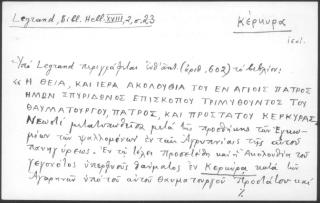 Legrand, Bibl. Hell. XVIII, 2, σ. 23
Κέρκυρα
Ὑπὸ Legrand περιγράφεται ὑπ' ἀριθ. (ἀριθ. 602) τὸ βιβλίον:
« Ἡ ΘΕΙΑ, ΚΑΙ ΙΕΡΑ ΑΚΟΛΟΥΘΙΑ ΤΟΥ ΕΝ ΑΓΙΟΙΣ ΠΑΤΡΟΣ
ΗΜΩΝ ΣΠΥΡΙΔΩΝΟΣ ΕΠΙΣΚΟΠΟΥ ΤΡΙΜΥΘΟΥΝΤΟΣ ΤΟΥ
ΘΑΥΜΑΤΟΥΡΓΟΥ, ΠΑΤΡΟΣ, ΚΑΙ ΠΡΟΣΤΑΤΟΥ ΚΕΡΚΥΡΑΣ.
Νεωστὶ μετατυπωθεῖσα μετὰ τῆς προσθήκης τῶν Ἐγκω-
μίων τῶν ψαλλομένων ἐν ταῖς Ἀγρυπνίαις τῆς αὐτοῦ
πανηγύρεως. Ἐν ᾗ τέλει προσετέθη καὶ ἡ Ἀκολουθία τοῦ
γεγονότος ὑπερφυοῦς θαύματος ἐν Κερκύρᾳ κατὰ τῶν
Ἀγαρηνῶν ὑπὸ τοῦ αὐτοῦ θαυματουργοῦ Προστάτου καὶ